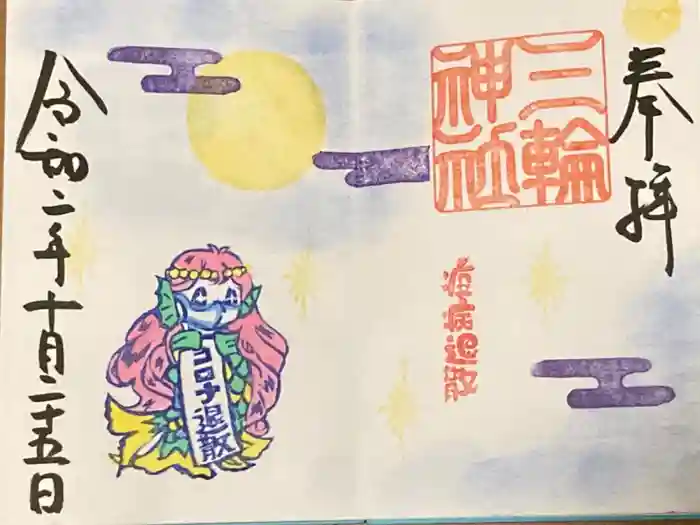 奉拝
三輪
神社
疫病退散
コロナ退散
令和二年十月二十五日